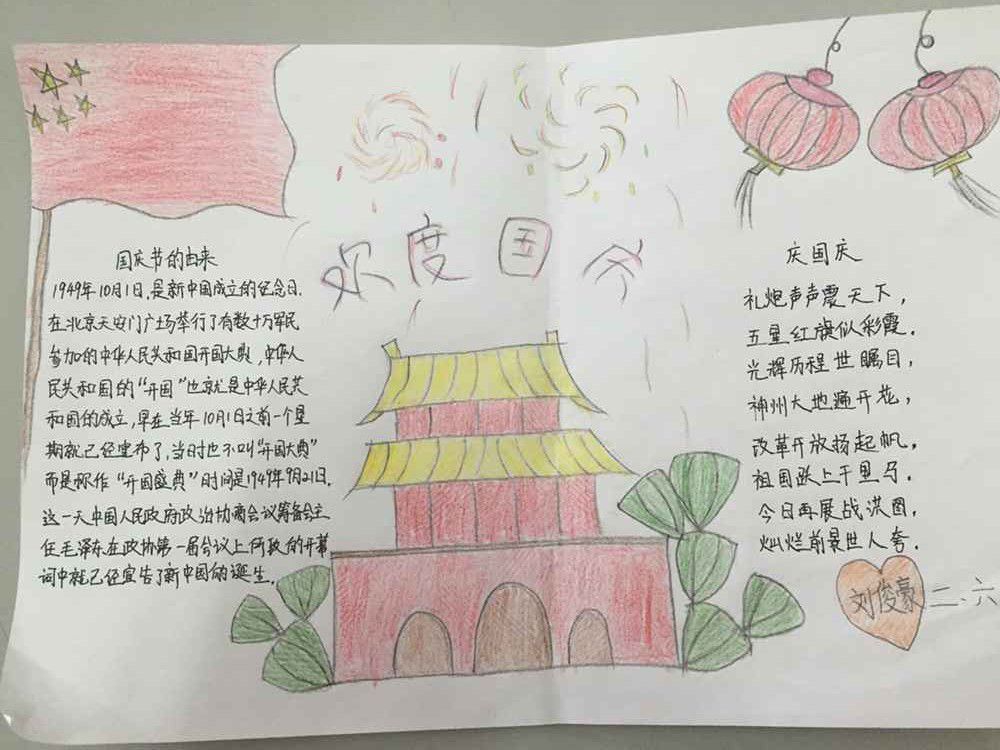 欢度国爷
国庆节的由来
1949年10月1日,是新中国成立的纪念日.
在北京天安门广场举行了有数十万军民
参加的中华人民共和国开国大典,中华人
民共和国的“开国”也就是中华人民共
和国的成立,早在当年10月1日之前一个星
期就已经宣布了,当时也不叫“开国大典”
而是称作“开国盛典”时间是1949年9月21日.
这一天中国人民政府政治协商会议筹备会主
任毛泽东在政协第一届会议上所致的开幕
词中就已经宣告了新中国的诞生.
庆国庆
礼炮声声震天下,
五星红旗似彩霞.
光辉历程世瞩目,
神州大地遍开花,
改革开放扬起帆,
祖国跃上千里马.
今日再展战洪图,
灿烂前景世人夸.
刘俊豪二.六